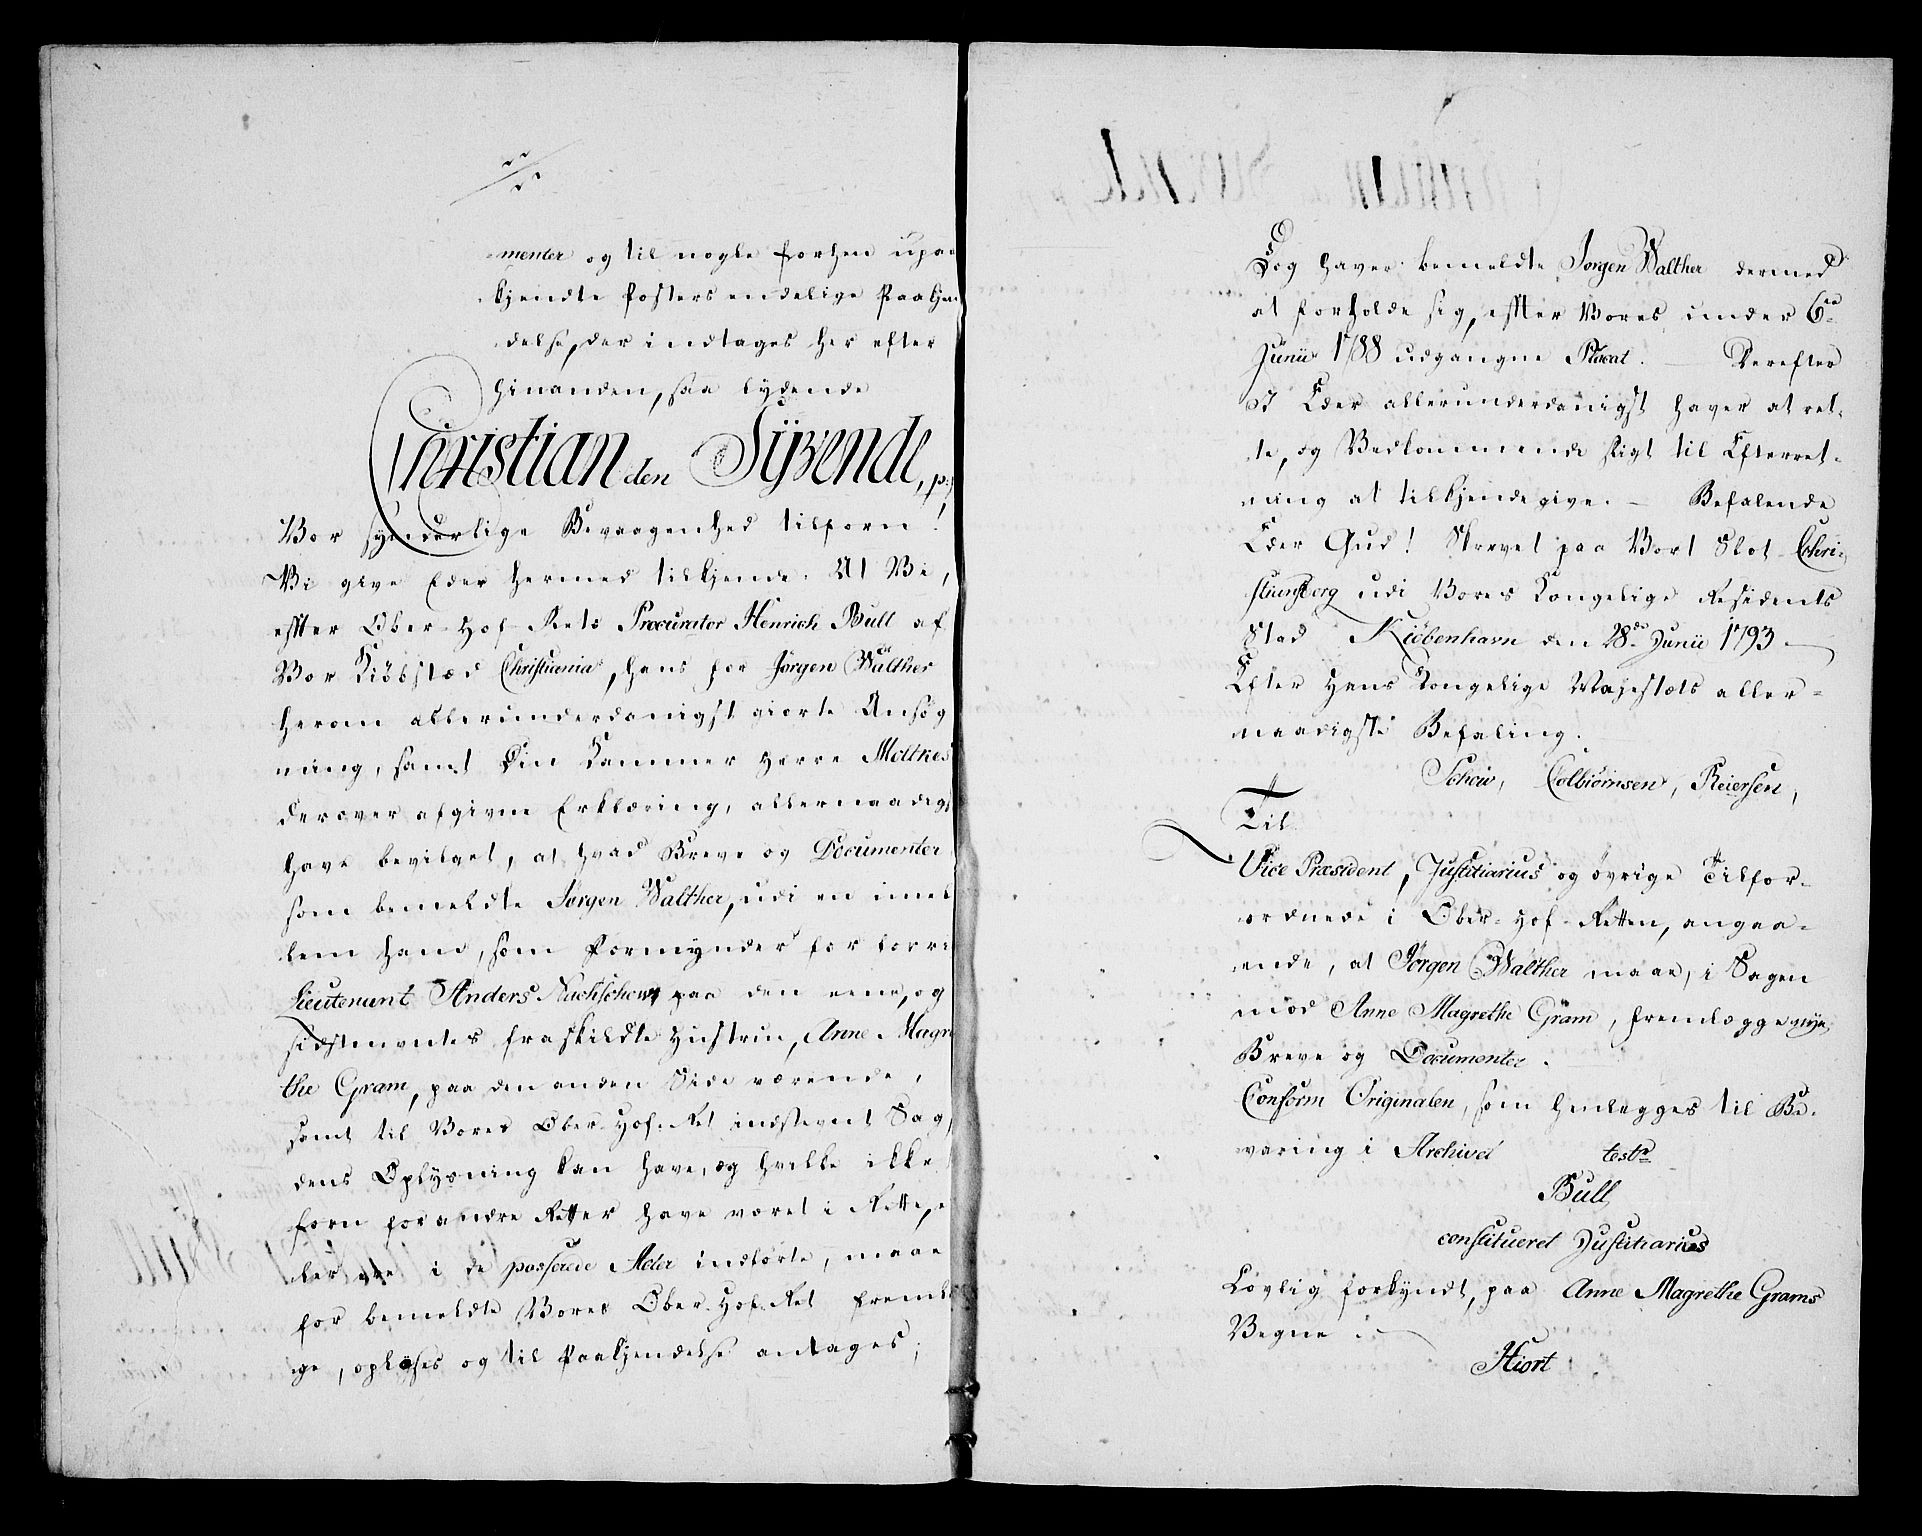 menter og til nogle forhen upaa
kjendte Posters endelige Paakjen
delse, der indtages her efter
hinanden, saa lydende
Christian den Syvende, p:p
Vor synderlige Bevaagenhed tilforn!
Vi give Eder hermed tilkjende. At Vi,
effter Ober-Hof-Rets Procurator Henrich Bull af
Vor Kiöbstæd Christiania, hans for Jørgen Walther
herom allerunderdanigst giorte Ansøg
ning, samt Din Kammer Herre Moltkes
derover afgivne Erklæring, allernaadigst
have bevilget, at hvad Breve og Documenter
som bemeldte Jørgen Walther, udi en imel
lem ham, som Formynder for
Lieutenant Anders paa den eene, og
sidstnevntes fraskildte Hustrue, Anne Magre
the Gram, paa den anden Side værende,
samt til Vores Ober-Hof-Ret indstevnt Sag,
dens Oplysning kan have, og hvilke ikke
forn for andre Retter have været i Rette, e
ler ere i de passerede Acter indførte, maae
for bemeldte Vores Ober-Hof-Ret fremlæ
ge, oplyses og til Paakjendelse antages;
Dog haver bemeldte Jørgen Walther dermed
at forholde sig, effter Vores under 6te
Junii 1788 udgangne Placat. — Derefter
I Eder allerunderdanigst haver at ret-
te, og Vedkommende sligt til Efterret-
ning at tilkjendegive. — Befalende
Eder Gud! Skrevet paa Vort Slot Chri-
stiansborg udi Vores Kongelige Residents
Stad Kiöbenhavn den 28de Junii 1793 —
Efter Hans Kongelige Majestæts aller-
naadigste Befaling.
Schow, Colbiörnsen, Reiersen,
Til
Vice Præsident, Justitiarius og øvrige Tilfor-
ordnede i Ober-Hof-Retten, angaa-
ende, at Jørgen Walther maae, i Sagen
mod Anne Magrethe Gram, fremlægge nye
Breve og Documenter.
Conform Originalen, som henlegges til Be-
varing i Archivet teste
Bull
constitueret Justitiarius
Lovlig forkyndt, paa Anne Magrethe Grams
Vegne
Hiort